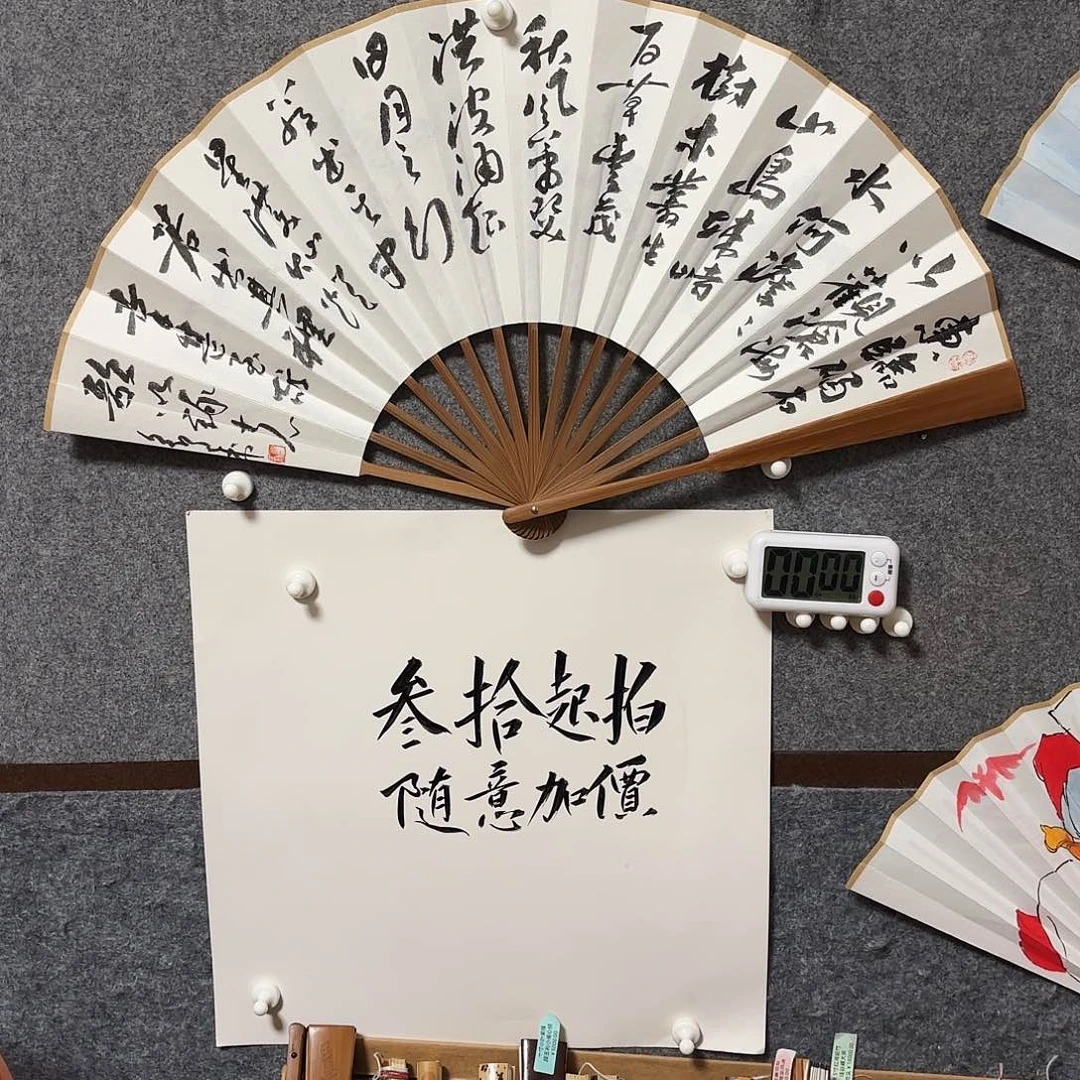 東臨碣石
以觀滄海
水何澹澹
山島竦峙
樹木叢生
百草豐茂
秋風蕭瑟
洪波涌起
日月之行
若出其中
星漢燦爛
若出其裡
幸甚至哉
歌以詠志
00 00
叁拾起拍
隨意加價